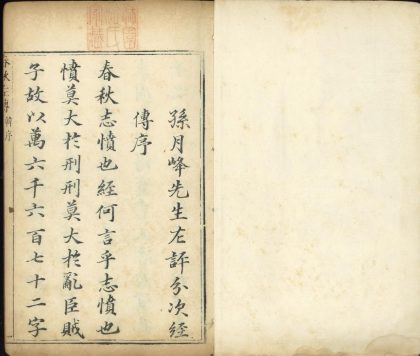 孫月峰先生左評分次經
傳序
春秋志憤也經何言乎志憤也
憤莫大於刑刑莫大於亂臣賊
子故以萬六千六百七十二字